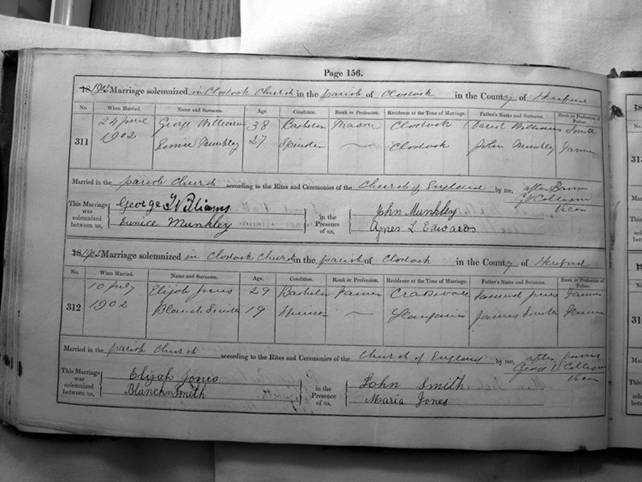 Page 156.
1902 Marriage solemnized in Clodock Church in the parish of Clodock in the County of Hereford
No. When Married. Name and Surname. Age. Condition. Rank or Profession. Residence at the Time of Marriage. Father's Name and Surname. Rank or Profession of Father.
311 24 1902 George Williams 38 Bachelor Mason Clodock David Williams Smith
Eunice Munkley 27 Spinster Clodock John Munkley Farmer
Married in the parish Church according to the Rites and Ceremonies of the Church of England by me, after Banns
This Marriage was solemnized between us, George Williams in the Presence of us, John Munkley
Eunice Munkley Agnes L Edwards
1902 Marriage solemnized in Clodock Church in the parish of Clodock in the County of Hereford
No. When Married. Name and Surname. Age. Condition. Rank or Profession. Residence at the Time of Marriage. Father's Name and Surname. Rank or Profession of Father.
312 10 July 1902 Elijah Jones 29 Bachelor Farmer Craswall Jones Farmer
Blanch Smith 19 Spinster James Smith Farmer
Married in the parish Church according to the Rites and Ceremonies of the Church of England by me, after
This Marriage was solemnized between us, Elijah Jones in the Presence of us, John Smith
Blanch Smith Maria Jones